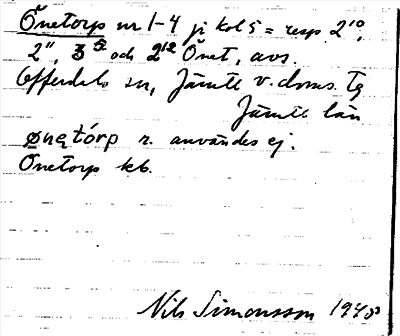 Önetorp nr 1-4 jr kol 5 = resp. 2¹⁰,
2¹¹, 3⁵ och 2¹² Önet, avs.
Offerdals sn, Jämtl. v. doms. Tg
Jämtl. län
ønętórp n. användes ej.
Önetorp kb.
Nils Simonsson 194